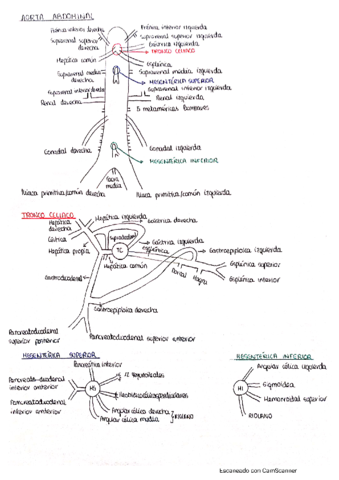 AORTA ABDOMINAL
Frénica inferior derecha
Frénica inferior izquierda
Suprarrenal superior derecha
Suprarrenal superior izquierda
Gástrica izquierda
TRONCO CELÍACO
Hepática común
Esplénica
Suprarrenal media derecha
Suprarrenal media izquierda
MESENTÉRICA SUPERIOR
Suprarrenal inferior derecha
Suprarrenal inferior izquierda
Renal derecha
Renal izquierda
5 metaméricas lumbares
Gonadal derecha
Gonadal izquierda
MESENTÉRICA INFERIOR
Sacra media
Ilíaca primitiva/común derecha
Ilíaca primitiva/común izquierda
TRONCO CELÍACO
Hepática derecha
Hepática izquierda
Gástrica derecha
Cística
Hepática propia
TC
Gástrica izquierda
Esplénica
Gastroepiploica izquierda
Hepática común
Esplénica superior
Esplénica inferior
Gastroduodenal
Gastroepiploica derecha
Pancreatoduodenal superior posterior
Pancreatoduodenal superior anterior
MESENTÉRICA SUPERIOR
MESENTÉRICA INFERIOR
Pancreática inferior
Pancreato-duodenal inferior anterior
MS
Pancreatoduodenal inferior anterior
Angular cólica derecha
Angular cólica media
RIOLANO
Angular cólica izquierda
MI
Sigmoidea
Hemorroidal superior
RIOLANO
Escaneado con CamScanner